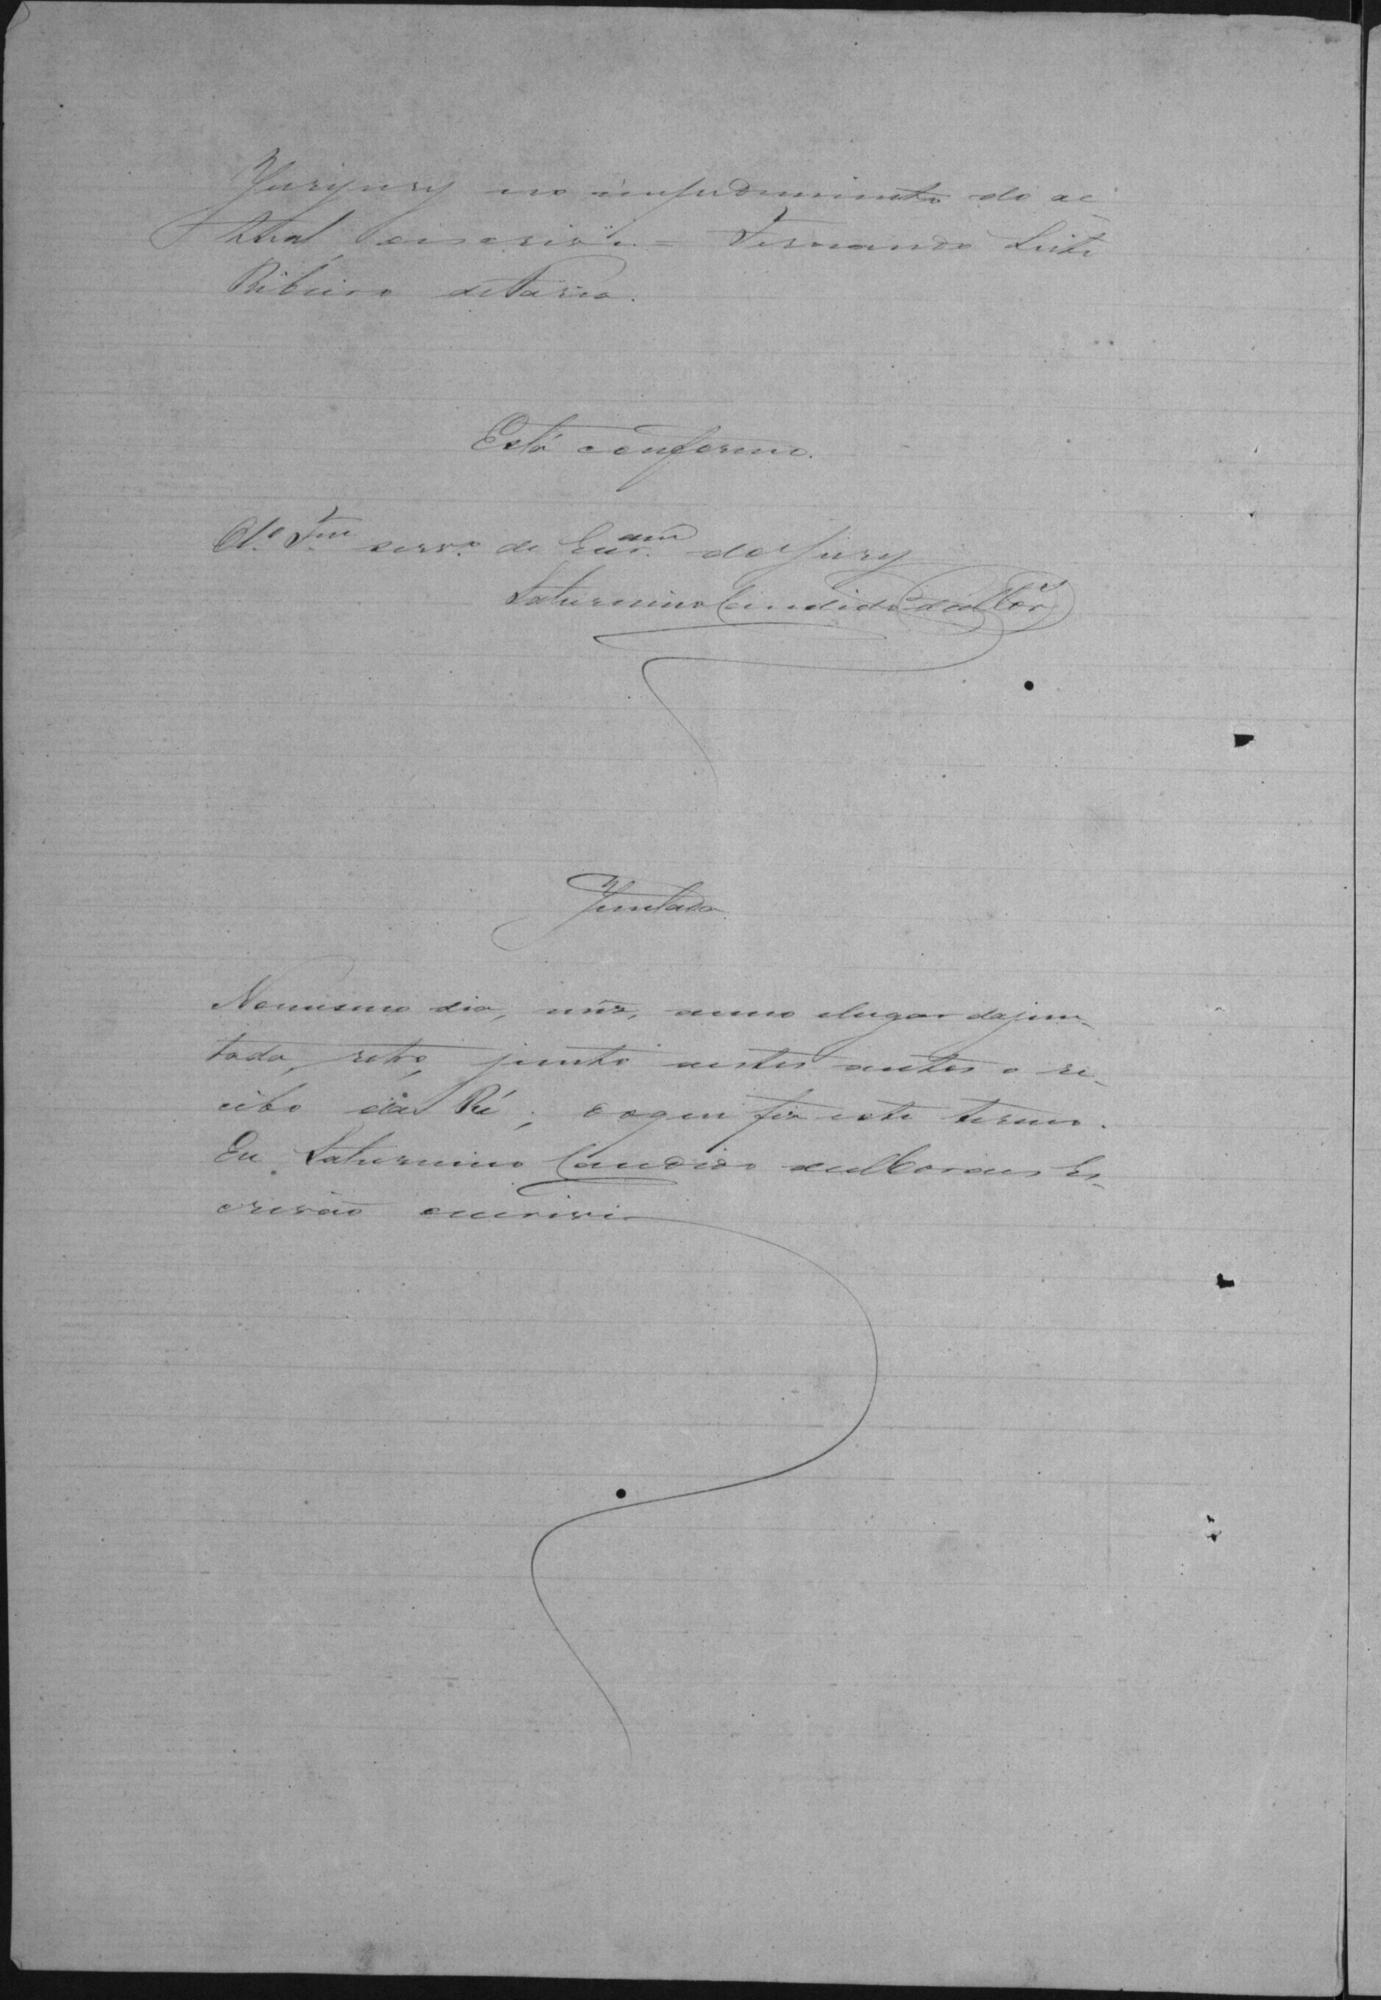 Jury no impedimento do ac
tual escrivão = Fernando Leite
Ribeiro de Faria.
Está conforme.
O 1.º Tne serv.º de Escr.am do Jury
Saturnino Candido de Mor.s
Juntada
No mesmo dia, mez, anno e lugar da jun-
tada, retro, junto a estes autos o re-
cibo da Ré; do que fiz este termo.
Eu, Saturnino Candido de Moraes Es-
crivão escrivi